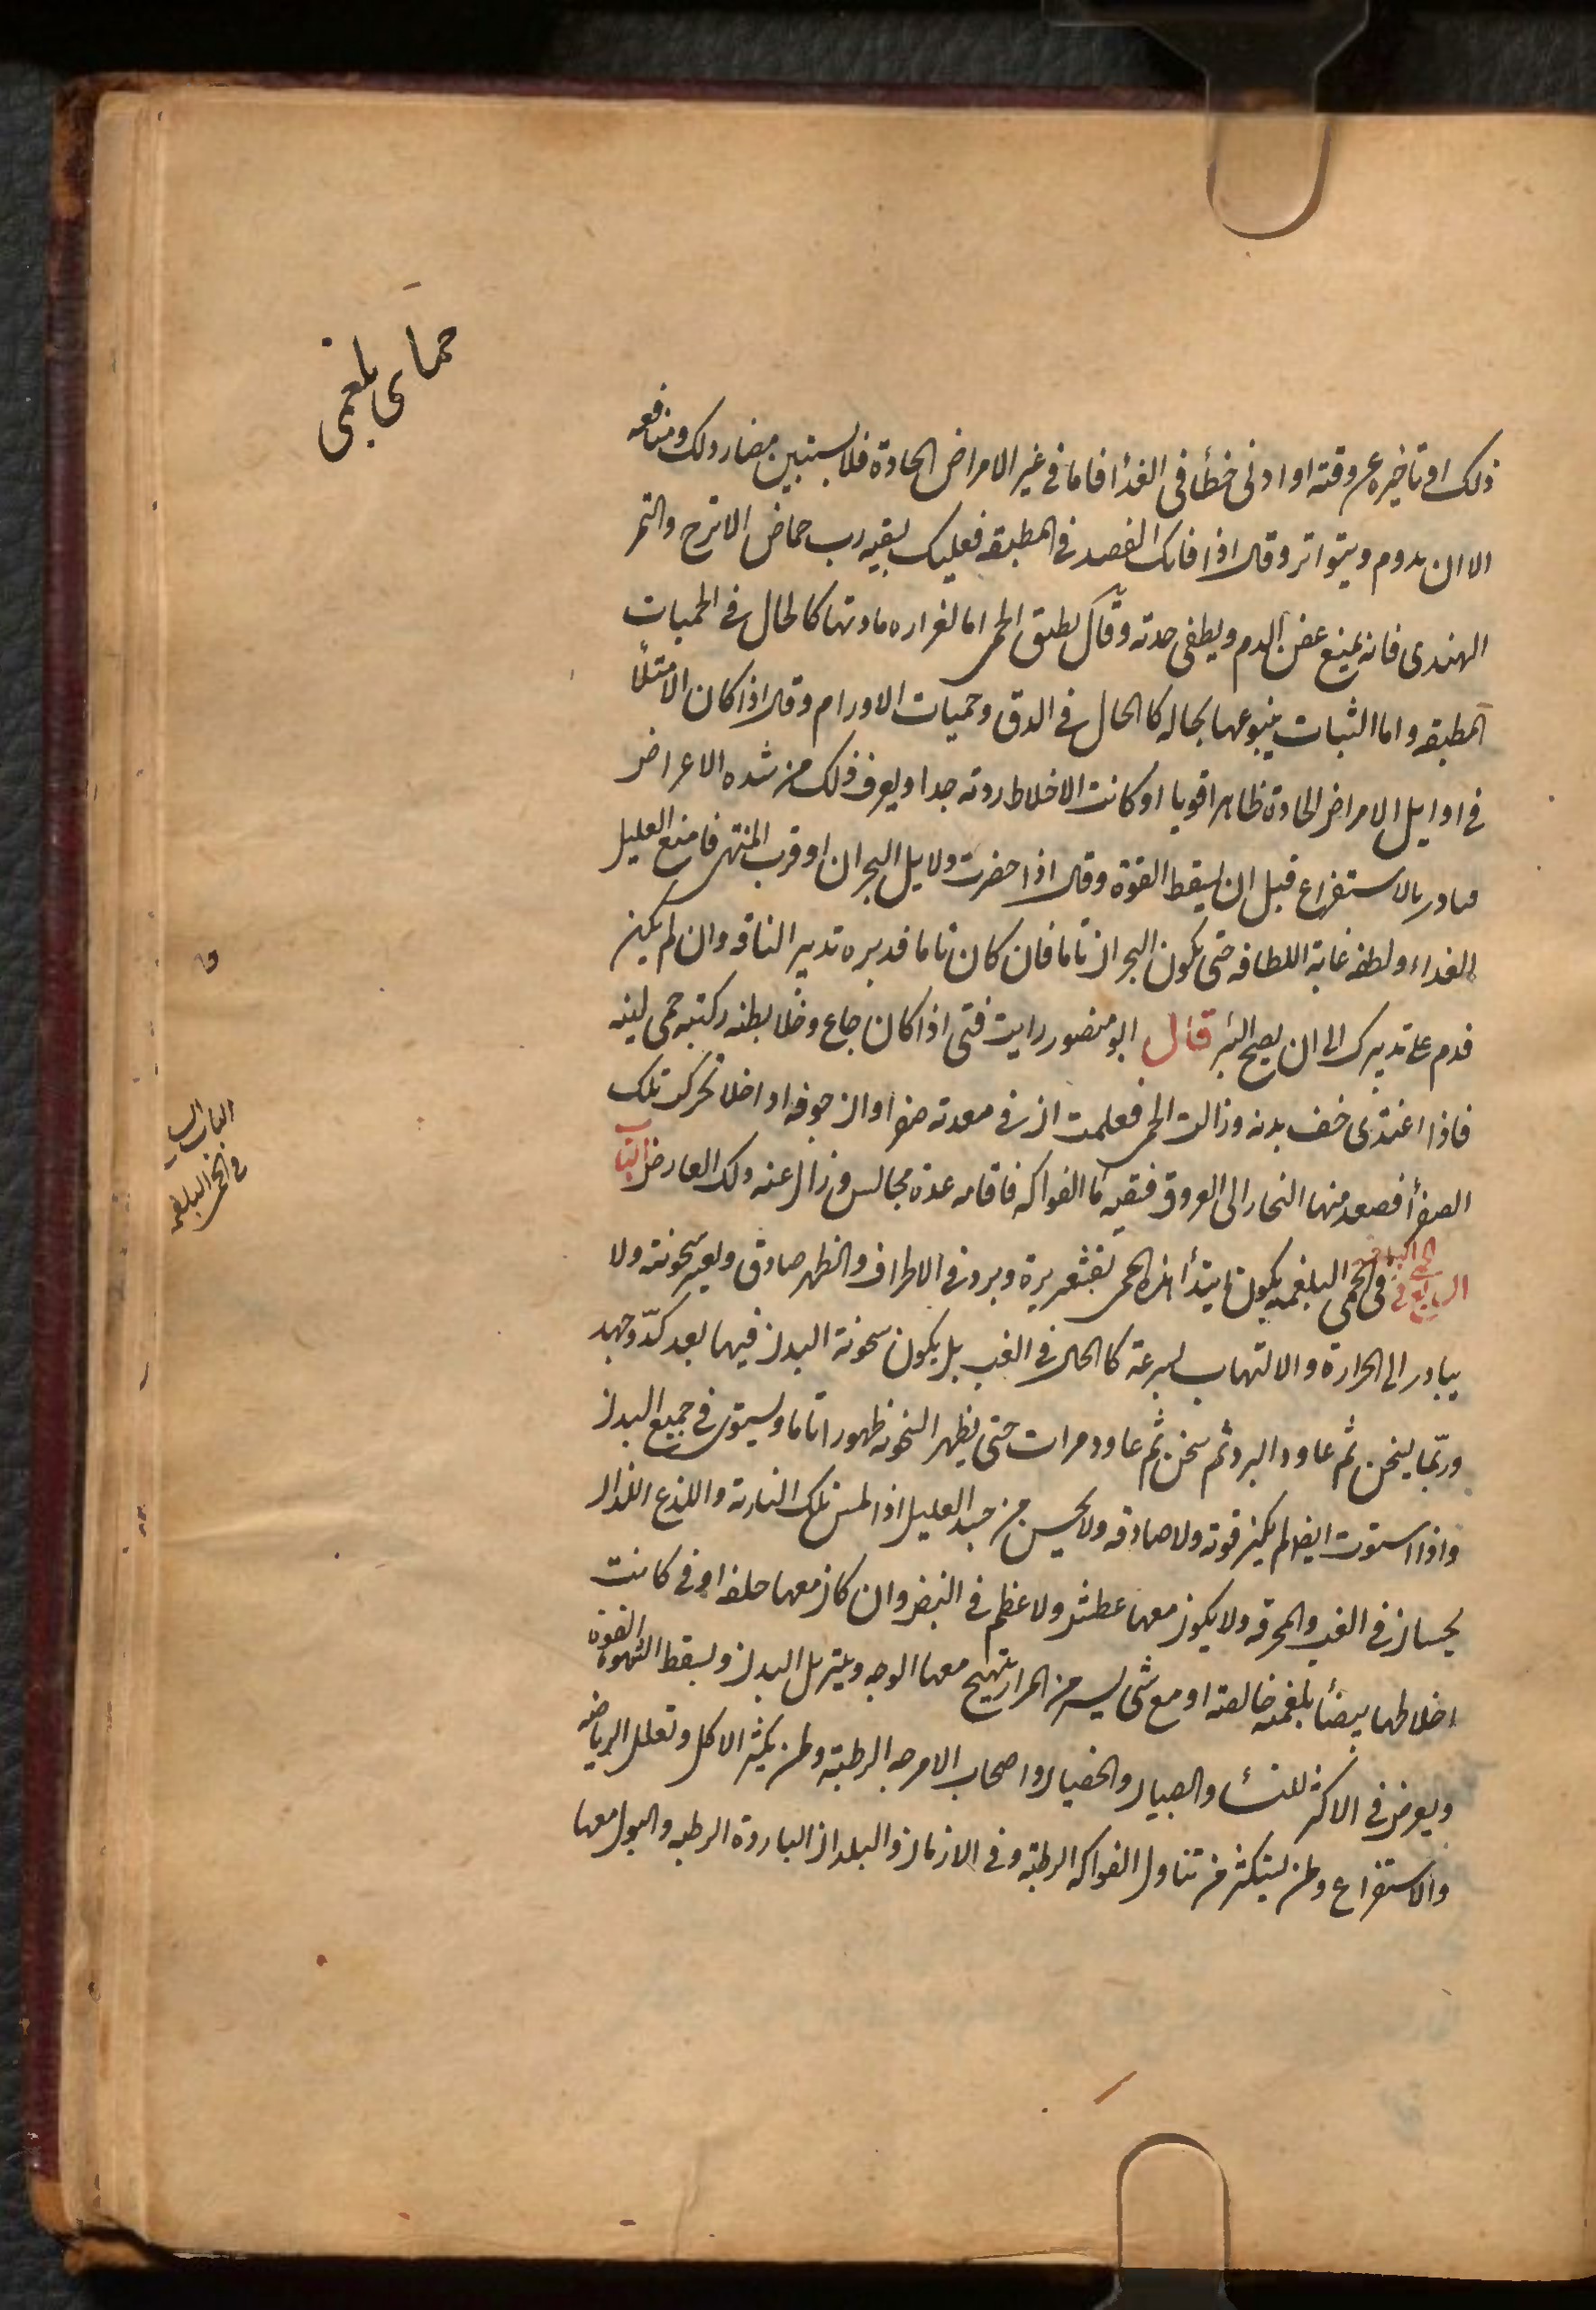 حماى بلغمى
ذلك او تاخيره عن وقته او ادنى خطأ فى الغذأ فاما فى غير الامراض الحادة فلا يستبين مضار ذلك ومنافعه
الا ان يدوم ويتواتر وقال اذا فاتك الفصد فى المطبقه فعليك بسقيه رب حماض الاترج والتمر
الهندى فانه يمنع عفن الدم ويطفى حدته وقال يطبق الحمى اما لغزاره مادتها كالحال فى الحميات
المطبقه واما الثبات ينبوعها بحاله كالحال فى الدق وحميات الاورام وقال اذا كان الامتلأ
فى اوايل الامراض الحادة ظاهرا قويا او كانت الاخلاط رديه جدا ويعرف ذلك من شده الاعراض
فبادر بالاستفراغ قبل ان يسقط القوة وقال اذا حضرت دلايل البحران او قرب المنتهى فامنع العليل
الغداء ولطفه غاية اللطافه حتى يكون البحران تاما فان كان تاما فدبره تدبير الناقه وان لم يكن
فدم على تدبيرك الى ان يصح البر قال ابو منصور رايت فتى اذا كان جاع وخلا بطنه ركبته حمى لينه
فاذا اغتذى خف بدنه وزالت الحمى فعلمت ان فى معدته صفرا وان جوفه اذا خلا تحركت تلك
الصفرأ فصعد منها البخار الى العروق فسقيته مأ الفواكه فاقامه عدة مجالس وزال عنه ذلك العارض الباب
السابع فى الحمى البلغميه يكون ابتدأ هذه الحمى بقشعريرة وبرد فى الاطراف والظهر صادق ويعسر سخونته ولا
يبادر الى الحرارة والالتهاب بسرعة كالحال فى الغب بل يكون سخونة البدن فيها بعد كدّ وجهد
وربّما يسخن ثم عاود البرد ثم سخن ثم عاود مرات حتى يظهر السخونه ظهورا تاما ويستوى فى جميع البدن
واذا استوت ايضا لم يكن قويه ولا صادقه ولا يحس من جسد العليل اذا لمس تلك الناريه واللذع اللذان
يحسان فى الغب والمحرقه ولا يكون معها عطش ولا عظم فى النبض وان كان معها خلفه او قى كانت
اخلاطها بيضأ بلغميه خالصه او مع شى يسير من المرار يتهيج معها الوجه ويترهل البدن ويسقط الشهوة القوة
ويعرض فى الاكثر للنسأ والصبيان والخصيان واصحاب الامزجه الرطبة ولمن يكثر الاكل وتعلل الرياضه
والاستفراغ ولمن يستكثر من تناول الفواكه الرطبة وفى الازمان والبلدان الباردة الرطبه والبول معها
فى الحمى البلغميه